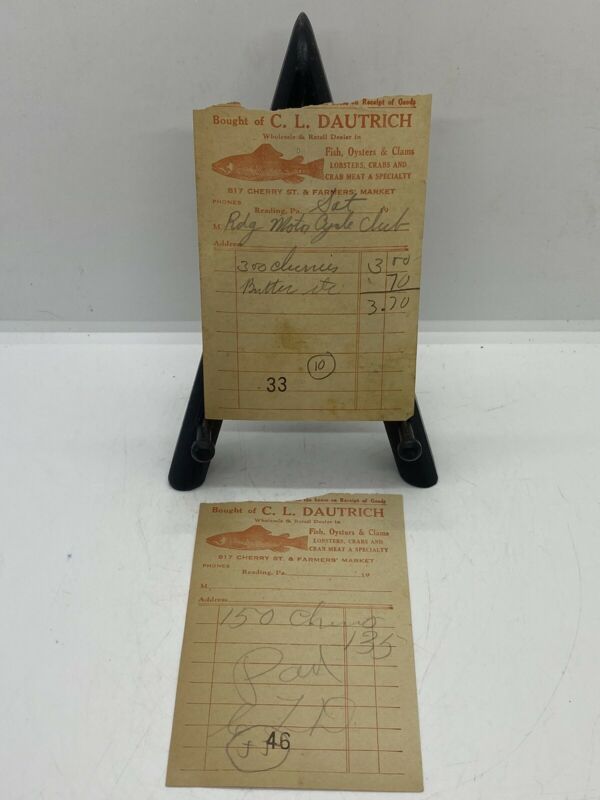 on Receipt of Goods
Bought of C. L. DAUTRICH
Wholesale & Retail Dealer in
Fish, Oysters & Clams
LOBSTERS, CRABS AND
CRAB MEAT A SPECIALTY
817 CHERRY ST. & FARMERS' MARKET
PHONES
Reading, Pa. Sat 19
M Rdg Moto Cycle Club
Address
300 3 00
Butter etc 70
3.70
10
33
the hours on Receipt of Goods
Bought of C. L. DAUTRICH
Wholesale & Retail Dealer in
Fish, Oysters & Clams
LOBSTERS, CRABS AND
CRAB MEAT A SPECIALTY
817 CHERRY ST. & FARMERS' MARKET
PHONES
Reading, Pa. 19
M
Address
150
135
Paid
C L D
46